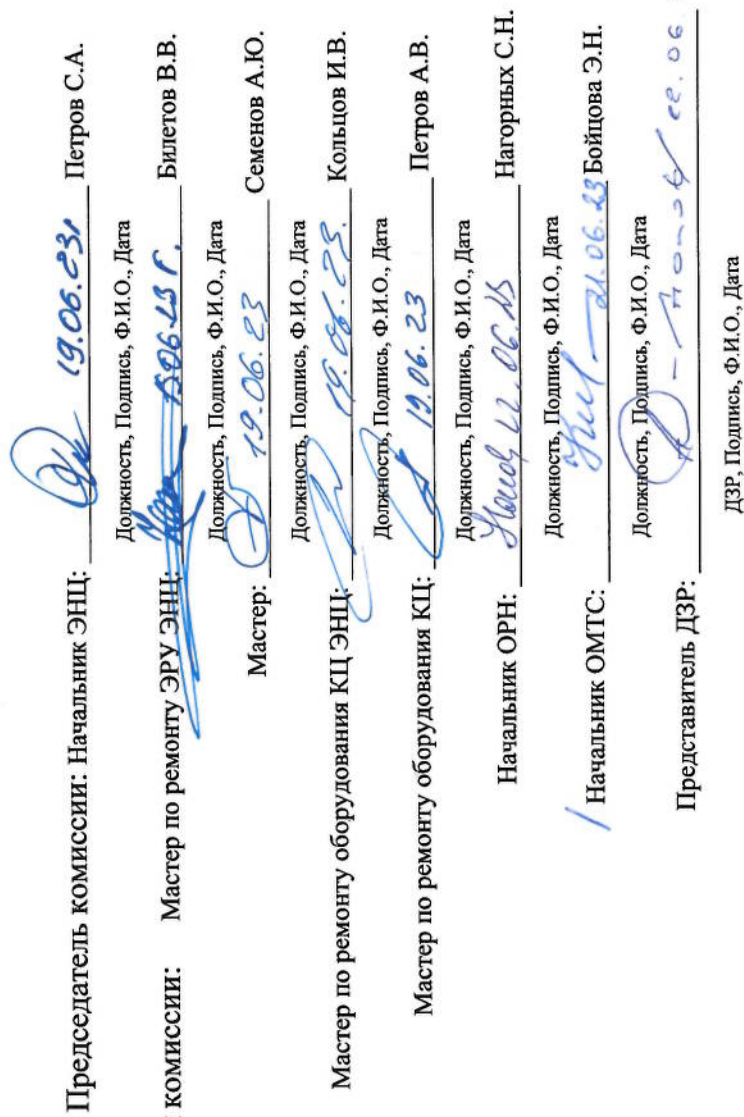 Председатель комиссии: Начальник ЭНЦ: 19.06.23г Петров С.А.
Должность, Подпись, Ф.И.О., Дата
комиссии: Мастер по ремонту ЭРУ ЭНЦ: Билетов В.В.
Должность, Подпись, Ф.И.О., Дата
Мастер: 19.06.23 Семенов А.Ю.
Должность, Подпись, Ф.И.О., Дата
Мастер по ремонту оборудования КЦ ЭНЦ: 19.06.23. Кольцов И.В.
Должность, Подпись, Ф.И.О., Дата
Мастер по ремонту оборудования КЦ: 19.06.23 Петров А.В.
Должность, Подпись, Ф.И.О., Дата
Начальник ОРН: 22.06.23 Нагорных С.Н.
Должность, Подпись, Ф.И.О., Дата
Начальник ОМТС: 21.06.23 Бойцова Э.Н.
Должность, Подпись, Ф.И.О., Дата
Представитель ДЗР:
ДЗР, Подпись, Ф.И.О., Дата